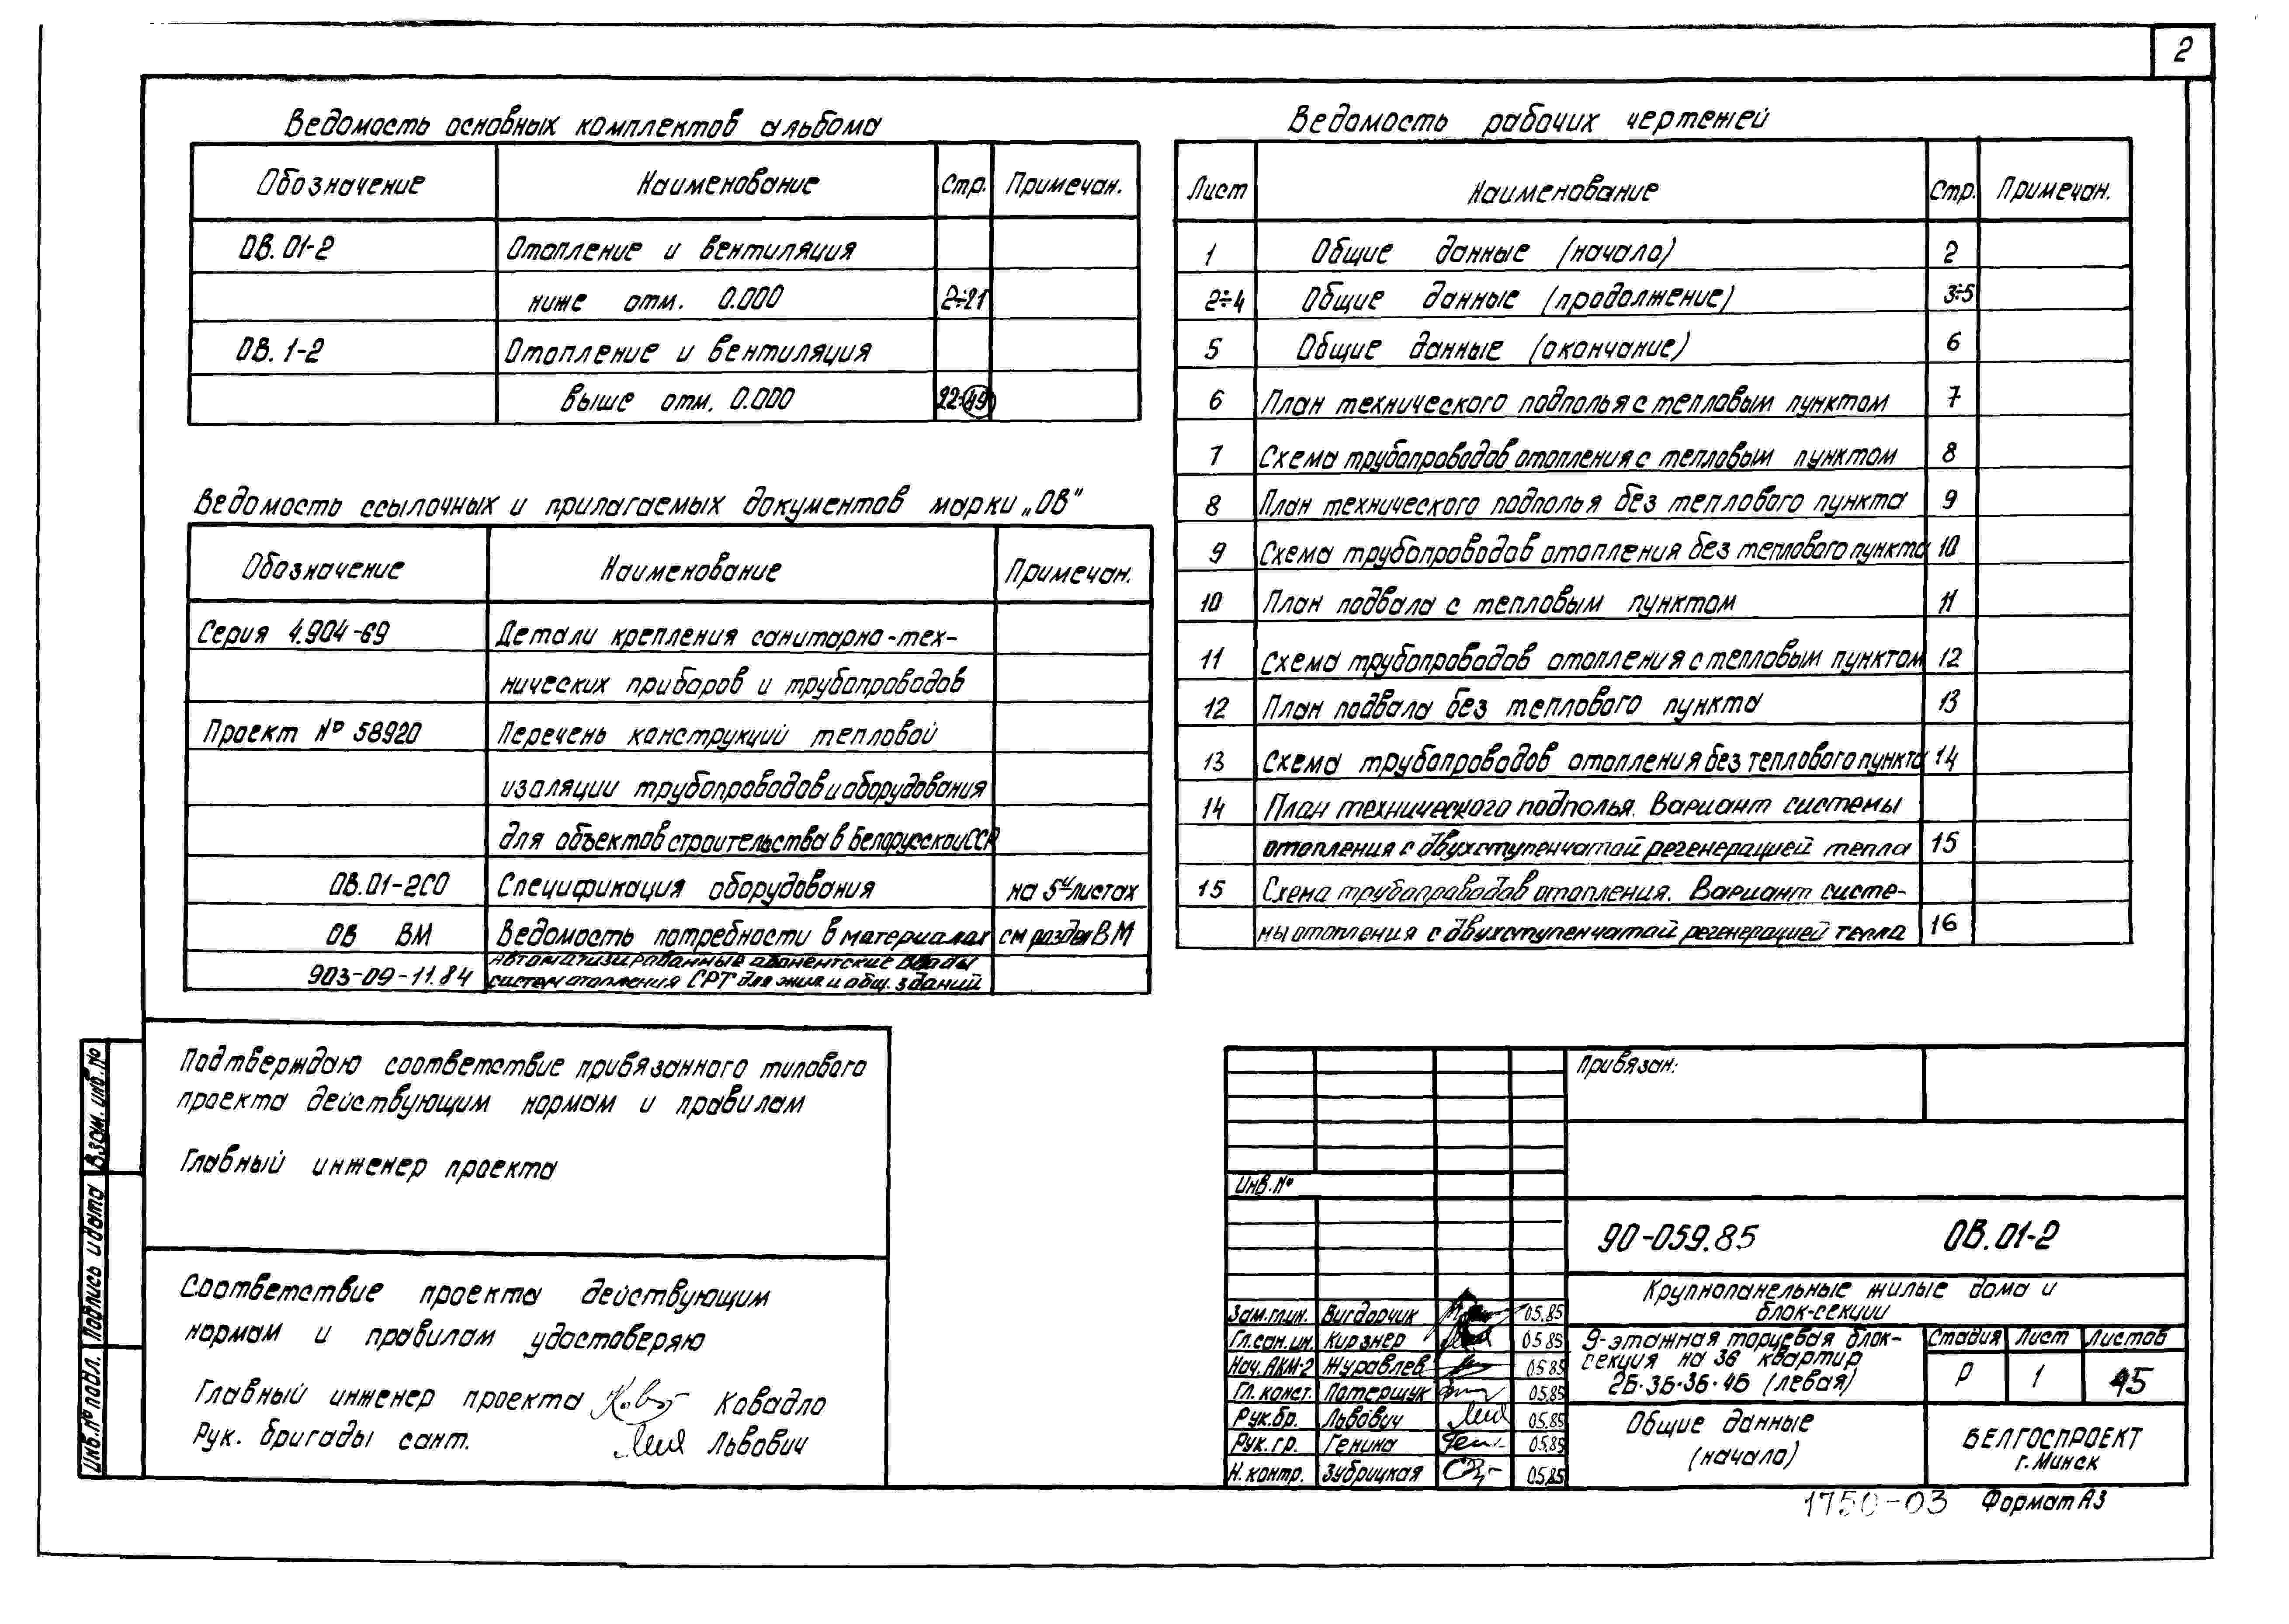 2
Ведомость основных комплектов альбома
Обозначение Наименование Стр. Примечан.
ОВ. 01-2 Отопление и вентиляция
ниже отм. 0.000 2÷21
ОВ. 1-2 Отопление и вентиляция
выше отм. 0.000 22÷49
Ведомость ссылочных и прилагаемых документов марки „ОВ"
Обозначение Наименование Примечан.
Серия 4.904-69 Детали крепления санитарно-тех-
нических приборов и трубопроводов
Проект № 58920 Перечень конструкций тепловой
изоляции трубопроводов и оборудования
для объектов строительства в Белорусской ССР
ОВ.01-2СО Спецификация оборудования на 5и листах
ОВ ВМ Ведомость потребности в материалах см разделы ВМ
903-09-11.84 Автоматизированные абонентские вводы
систем отопления СРТ для жил. и общ. зданий
Ведомость рабочих чертежей
Лист Наименование Стр. Примечан.
1 Общие данные (начало) 2
2÷4 Общие данные (продолжение) 3÷5
5 Общие данные (окончание) 6
6 План технического подполья с тепловым пунктом 7
7 Схема трубопроводов отопления с тепловым пунктом 8
8 План технического подполья без теплового пункта 9
9 Схема трубопроводов отопления без теплового пункта 10
10 План подвала с тепловым пунктом 11
11 Схема трубопроводов отопления с тепловым пунктом 12
12 План подвала без теплового пункта 13
13 Схема трубопроводов отопления без теплового пункта 14
14 План технического подполья. Вариант системы
отопления с двухступенчатой регенерацией тепла 15
15 Схема трубопроводов отопления. Вариант систе-
мы отопления с двухступенчатой регенерацией тепла 16
Подтверждаю соответствие привязанного типового
проекта действующим нормам и правилам
Главный инженер проекта
Соответствие проекта действующим
нормам и правилам удостоверяю
Главный инженер проекта Ковадло
Рук. бригады сант. Львович
Взам. инв. №
Подпись и дата
Инв. № подл.
Привязан:
Инв. №
90-059.85 ОВ.01-2
Крупнопанельные жилые дома и
блок-секции
Зам.гл.ин. Вигдорчик 05.85
Гл.сан.ин. Кирзнер 05.85
Нач.АКМ-2 Журавлев 05.85
Гл. конст. Потерщук 05.85
Рук.бр. Львович 05.85
Рук.гр. Генина 05.85
Н.контр. Зубрицкая 05.85
9-этажная торцевая блок-
секция на 36 квартир
2Б.3Б.3Б.4Б (левая)
Стадия Лист Листов
Р 1 15
Общие данные
(начало)
БЕЛГОСПРОЕКТ
г. Минск
1750-03 Формат А3